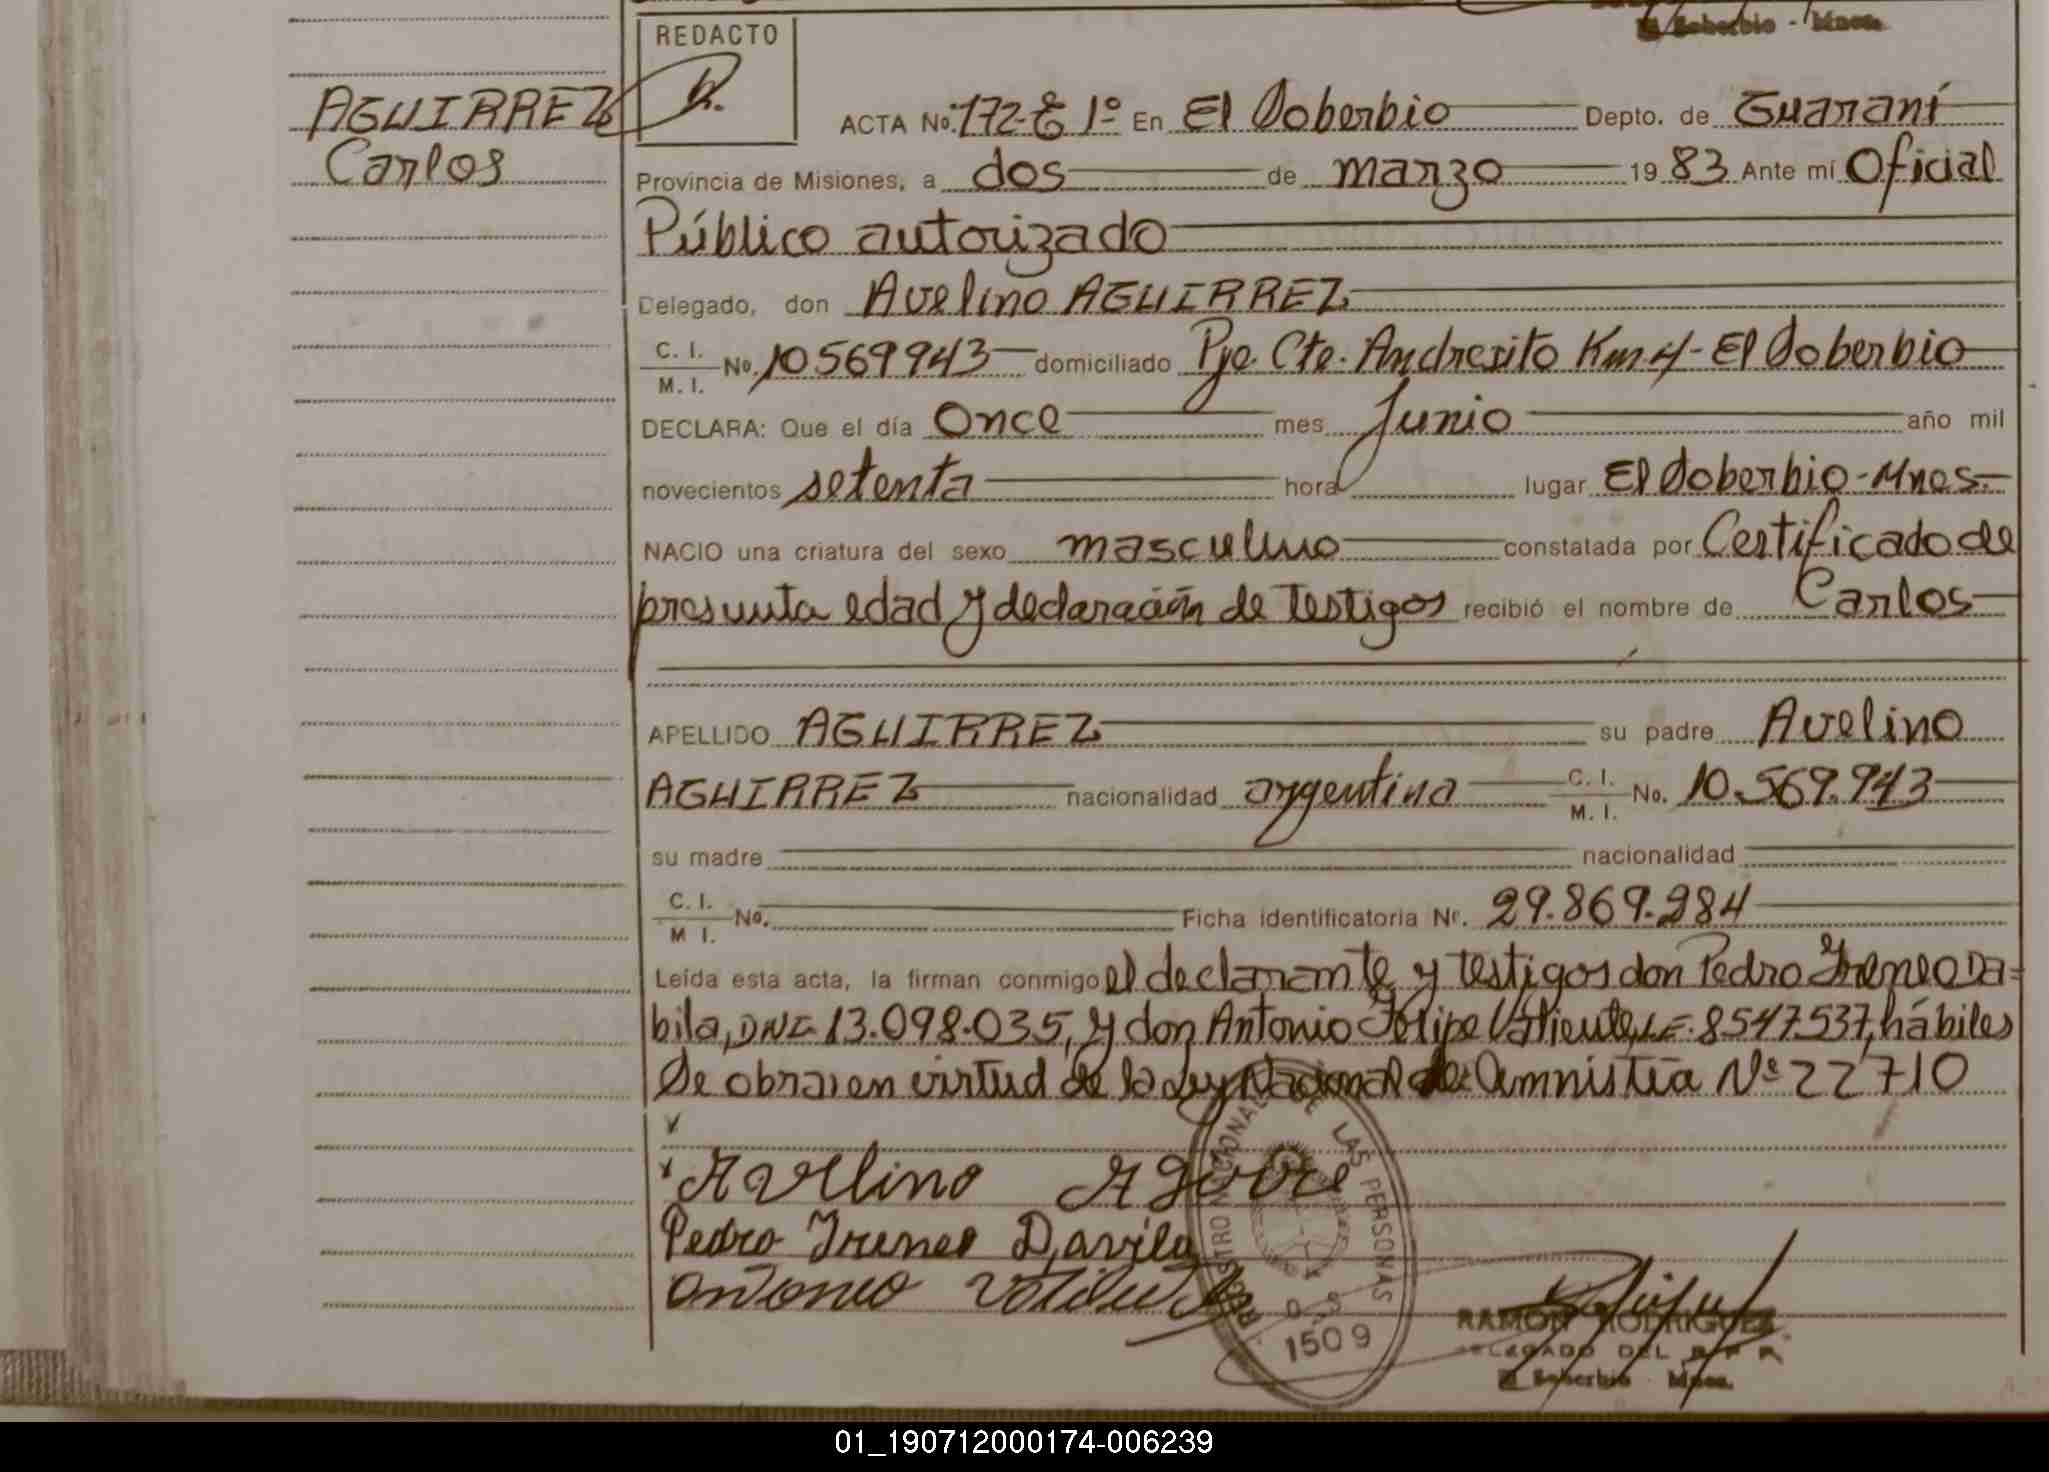 El Soberbio - Mnes.
REDACTO
AGUIRREZ
Carlos
ACTA No. 172-E 1º En El Soberbio Depto. de Guaraní
Provincia de Misiones, a dos de marzo 19 83 Ante mí Oficial
Público autorizado
Delegado, don Avelino AGUIRREZ
C. I. M. I. No. 10569943 domiciliado Pje. Cte. Andresito Km 4 - El Soberbio
DECLARA: Que el día Once mes Junio año mil
novecientos setenta hora lugar El Soberbio - Mnes.-
NACIO una criatura del sexo masculino constatada por Certificado de
presunta edad y declaración de Testigos recibió el nombre de Carlos
APELLIDO AGUIRREZ su padre Avelino
AGUIRREZ nacionalidad argentina C. I. M. I. No. 10.569.943
su madre nacionalidad
C. I. M I. No. Ficha identificatoria Nº. 29.869.284
Leída esta acta, la firman conmigo el declarante y testigos don Pedro Ireneo Da=
bila, DNI- 13.098.035, y don Antonio Felipe Valiente, LE. 8547.537, hábiles
Se obra: en virtud de la Ley Nacional de Amnistía Nº 22710
Avelino Aguirre
Pedro Ireneo Davila
Antonio
REGISTRO NACIONAL DE LAS PERSONAS
1509
RAMON RODRIGUEZ
DELEGADO DEL R P R
El Soberbio Mnes.
01_190712000174-006239